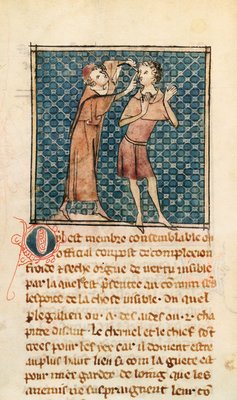 Oyl est membre consemblable ou
official compost de complexion
froide ⁊ seche orgue de vertu visible
par la quel est presentee ou comun sens
lespece de la chose visible. ou quel
ple galien ou des ou .2. cha
pitre disant. Le cervel et le chief sot
crees pour les yex car il doivent estre
au plus haut lieu si com la guete est
por miex garder de loing que les
anemis ne surpraignent leur